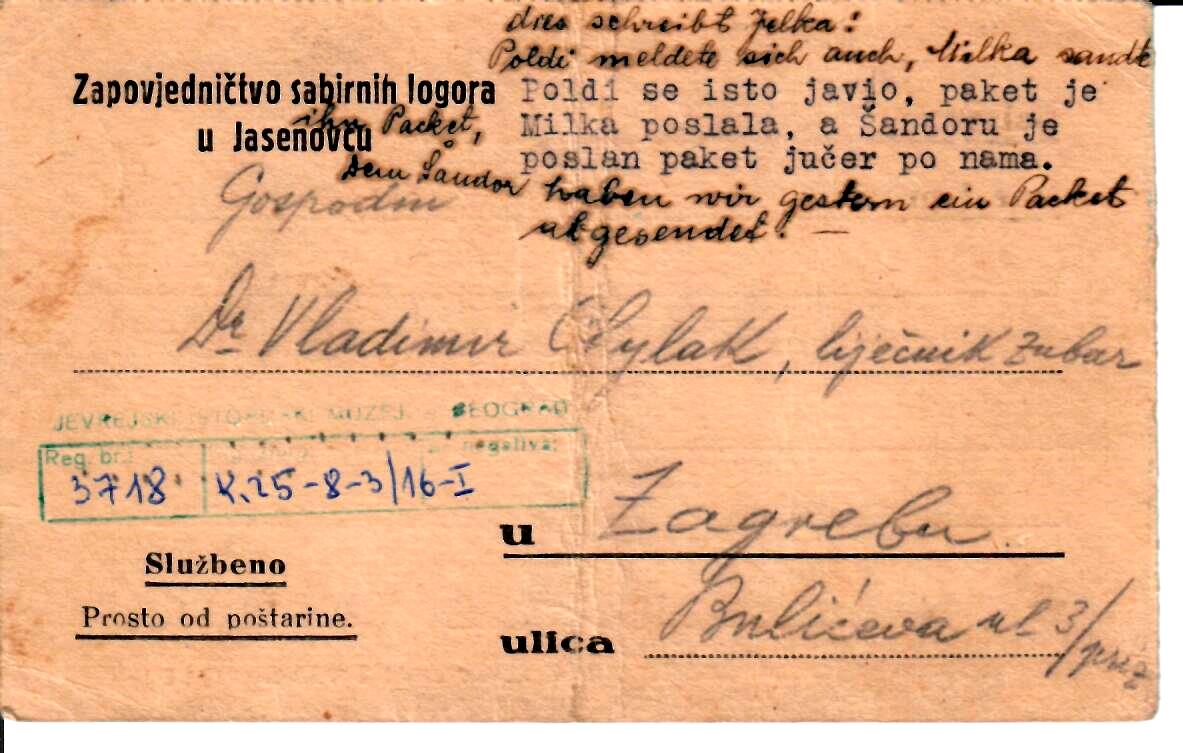 dies schreibt Jelka:
Poldi meldete sich auch, Milka sandte
ihm Packet,
dem Šandor haben wir gestern ein Packet
abgesendet. —
Poldi se isto javio, paket je
Milka poslala, a Šandoru je
poslan paket jučer po nama.
Zapovjedničtvo sabirnih logora
u Jasenovcu
Gospodin
Dr Vladimir, liječnik zubar
JEVREJSKI ISTORIJSKI MUZEJ - BEOGRAD
Reg. br.: negativa:
3718. K.25-8-3/16-I
u Zagrebu
Službeno
Prosto od poštarine.
ulica Bulićeva ul 3/